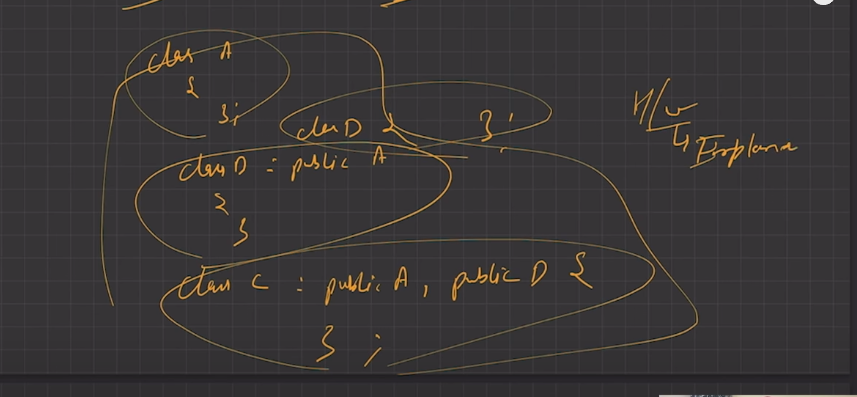 class A
{
};
class D {        };
class D : public A
{
}
class C : public A, public D {
} ;
H/w